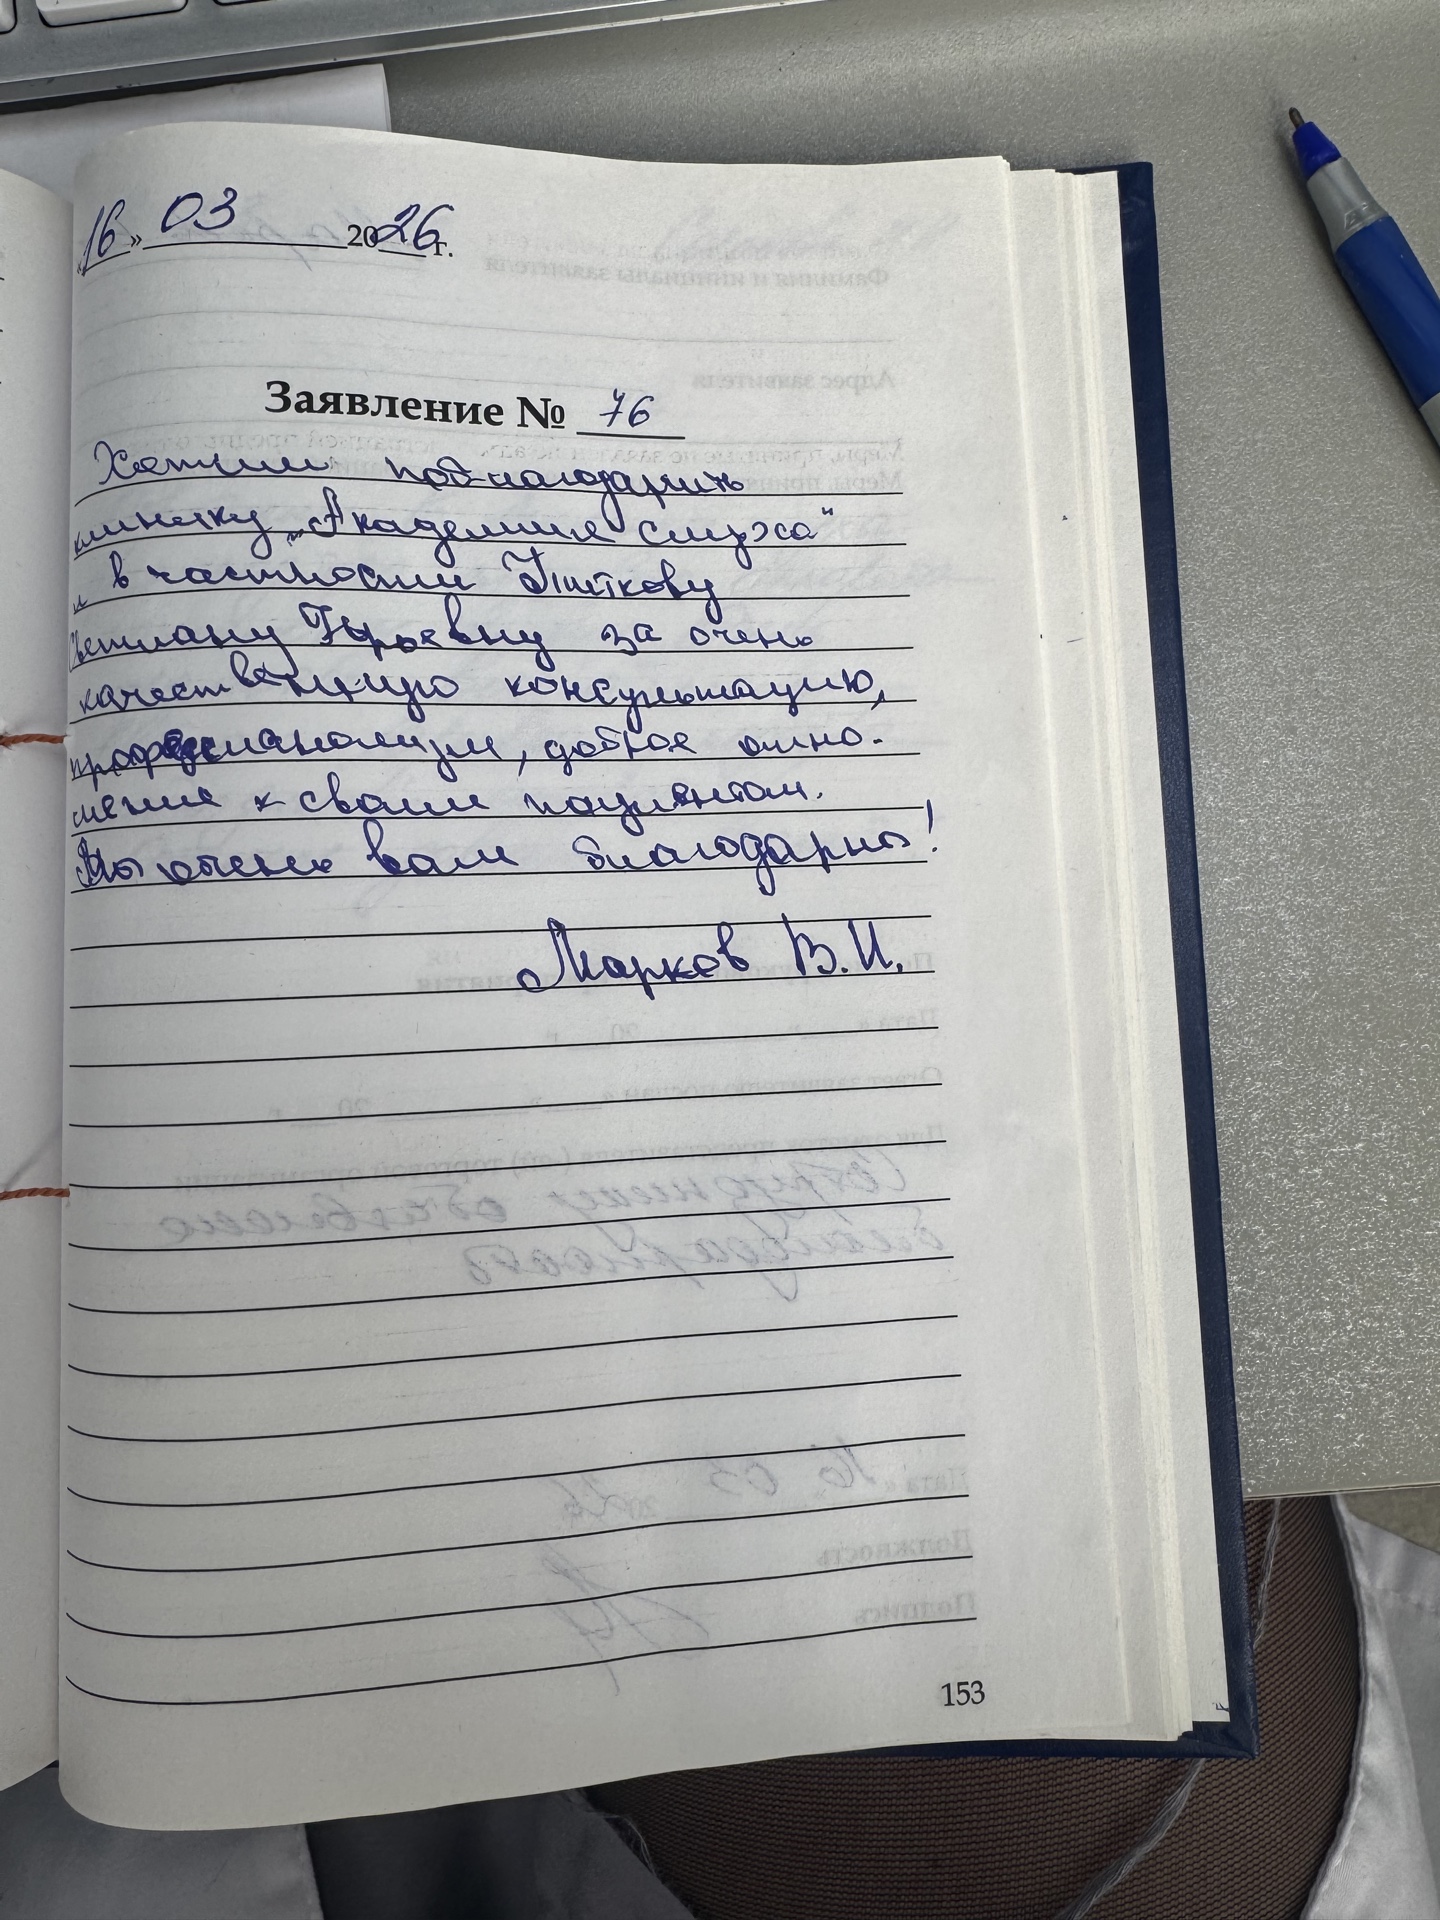 «16» 03 2026 г.
Заявление № 76
Хотим поблагодарить
клинику „Академия слуха“
и в частности
Светлану Юрьевну за очень
качественную консультацию,
профессионализм, доброе отно-
шение к своим пациентам.
Мы очень вам благодарны!
Марков В.И.
153